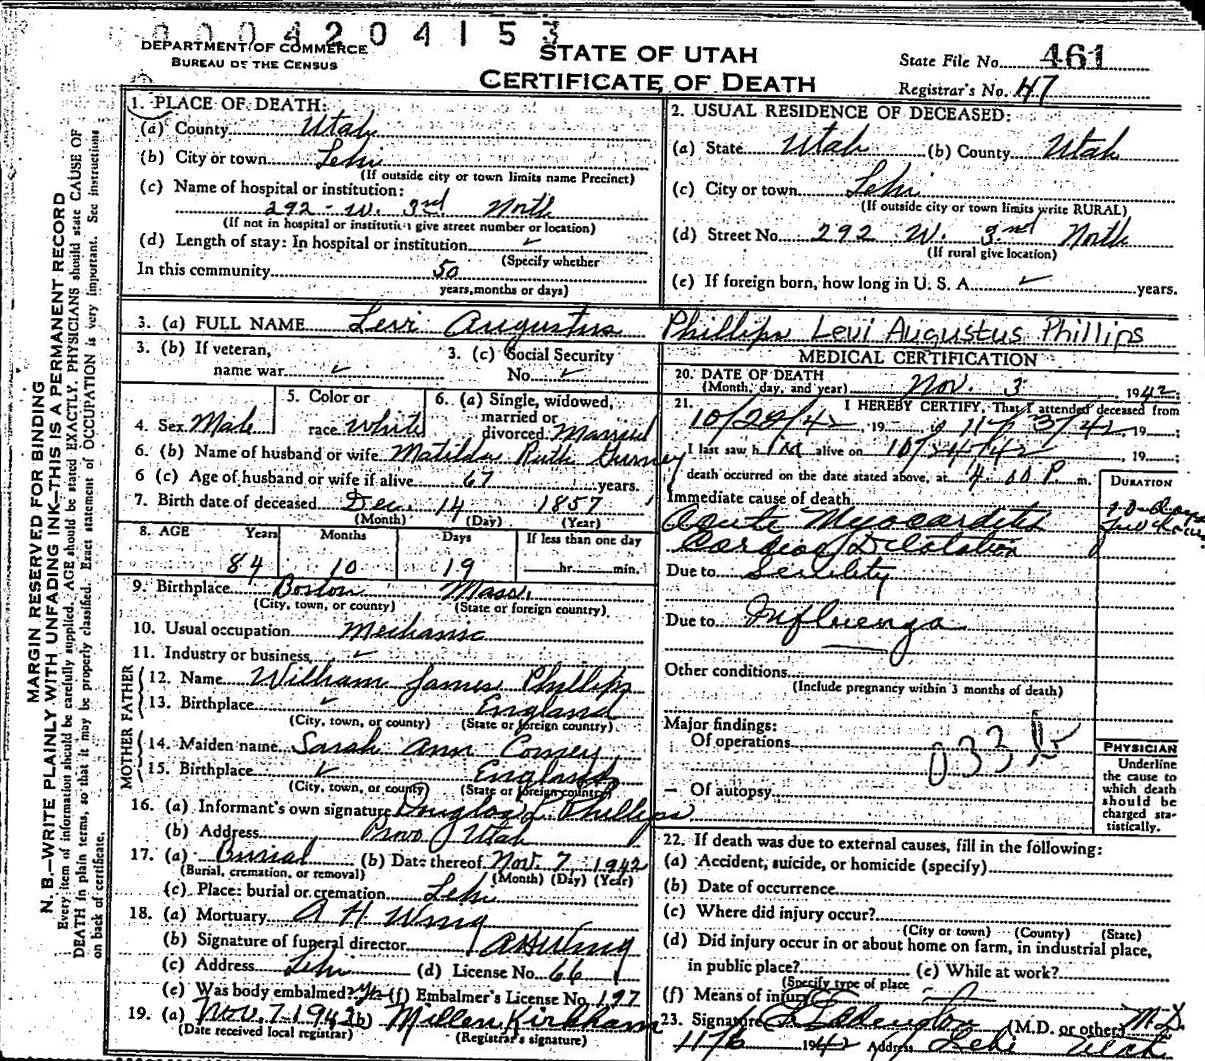 0004204153
DEPARTMENT OF COMMERCE
BUREAU OF THE CENSUS
STATE OF UTAH
CERTIFICATE OF DEATH
State File No. 461
Registrar's No. 47
MARGIN RESERVED FOR BINDING
N. B.—WRITE PLAINLY WITH UNFADING INK—THIS IS A PERMANENT RECORD
Every item of information should be carefully supplied. AGE should be stated EXACTLY. PHYSICIANS should state CAUSE OF
DEATH in plain terms, so that it may be properly classified. Exact statement of OCCUPATION is very important. See instructions
on back of certificate.
1. PLACE OF DEATH:
(a) County Utah
(b) City or town Lehi
(If outside city or town limits name Precinct)
(c) Name of hospital or institution:
292 - W. 3rd North
(If not in hospital or institution give street number or location)
(d) Length of stay: In hospital or institution ✓
(Specify whether
In this community 50
years, months or days)
2. USUAL RESIDENCE OF DECEASED:
(a) State Utah (b) County Utah
(c) City or town Lehi
(If outside city or town limits write RURAL)
(d) Street No. 292 W. 3rd North
(If rural give location)
(e) If foreign born, how long in U. S. A. ✓ years.
3. (a) FULL NAME Levi Augustus Phillips Levi Augustus Phillips
3. (b) If veteran,
name war ✓
3. (c) Social Security
No. ✓
4. Sex Male
5. Color or
race White
6. (a) Single, widowed,
married or
divorced Married
6. (b) Name of husband or wife Matilda Ruth Gurney
6 (c) Age of husband or wife if alive 67 years.
7. Birth date of deceased Dec. 14 1857
(Month) (Day) (Year)
8. AGE Years Months Days If less than one day
84 10 19 hr. min.
9. Birthplace Boston Mass.
(City, town, or county) (State or foreign country)
10. Usual occupation Mechanic
11. Industry or business ✓
FATHER
12. Name William James Phillips
13. Birthplace ✓ England
(City, town, or county) (State or foreign country)
MOTHER
14. Maiden name Sarah Ann Comey
15. Birthplace ✓ England
(City, town, or county) (State or foreign country)
16. (a) Informant's own signature Douglas L Phillips
(b) Address Provo Utah
17. (a) Burial (b) Date thereof Nov. 7, 1942
(Burial, cremation, or removal) (Month) (Day) (Year)
(c) Place: burial or cremation Lehi
18. (a) Mortuary A H Wing
(b) Signature of funeral director A H Wing
(c) Address Lehi (d) License No. 66
(e) Was body embalmed? yes (f) Embalmer's License No. 197
19. (a) Nov. 7 1942 (b) Millen Kirkham
(Date received local registrar) (Registrar's signature)
MEDICAL CERTIFICATION
20. DATE OF DEATH
(Month, day, and year) Nov. 3 1942;
21. I HEREBY CERTIFY, That I attended deceased from
10/20/42, 19 to 11/3/42, 19 ;
I last saw him alive on 10/ /42, 19 ;
death occurred on the date stated above, at 4:00 P. m.
DURATION
Immediate cause of death
Acute Myocarditis 10 days
Cardiac Dilatation
Due to Senility
Due to Influenza
Other conditions
(Include pregnancy within 3 months of death)
Major findings:
Of operations
033
Of autopsy
PHYSICIAN
Underline
the cause to
which death
should be
charged sta-
tistically.
22. If death was due to external causes, fill in the following:
(a) Accident, suicide, or homicide (specify)
(b) Date of occurrence
(c) Where did injury occur?
(City or town) (County) (State)
(d) Did injury occur in or about home on farm, in industrial place,
in public place? (e) While at work?
(Specify type of place
(f) Means of injury
23. Signature (M.D. or other) M.D.
11/6 1942 Address Lehi Utah